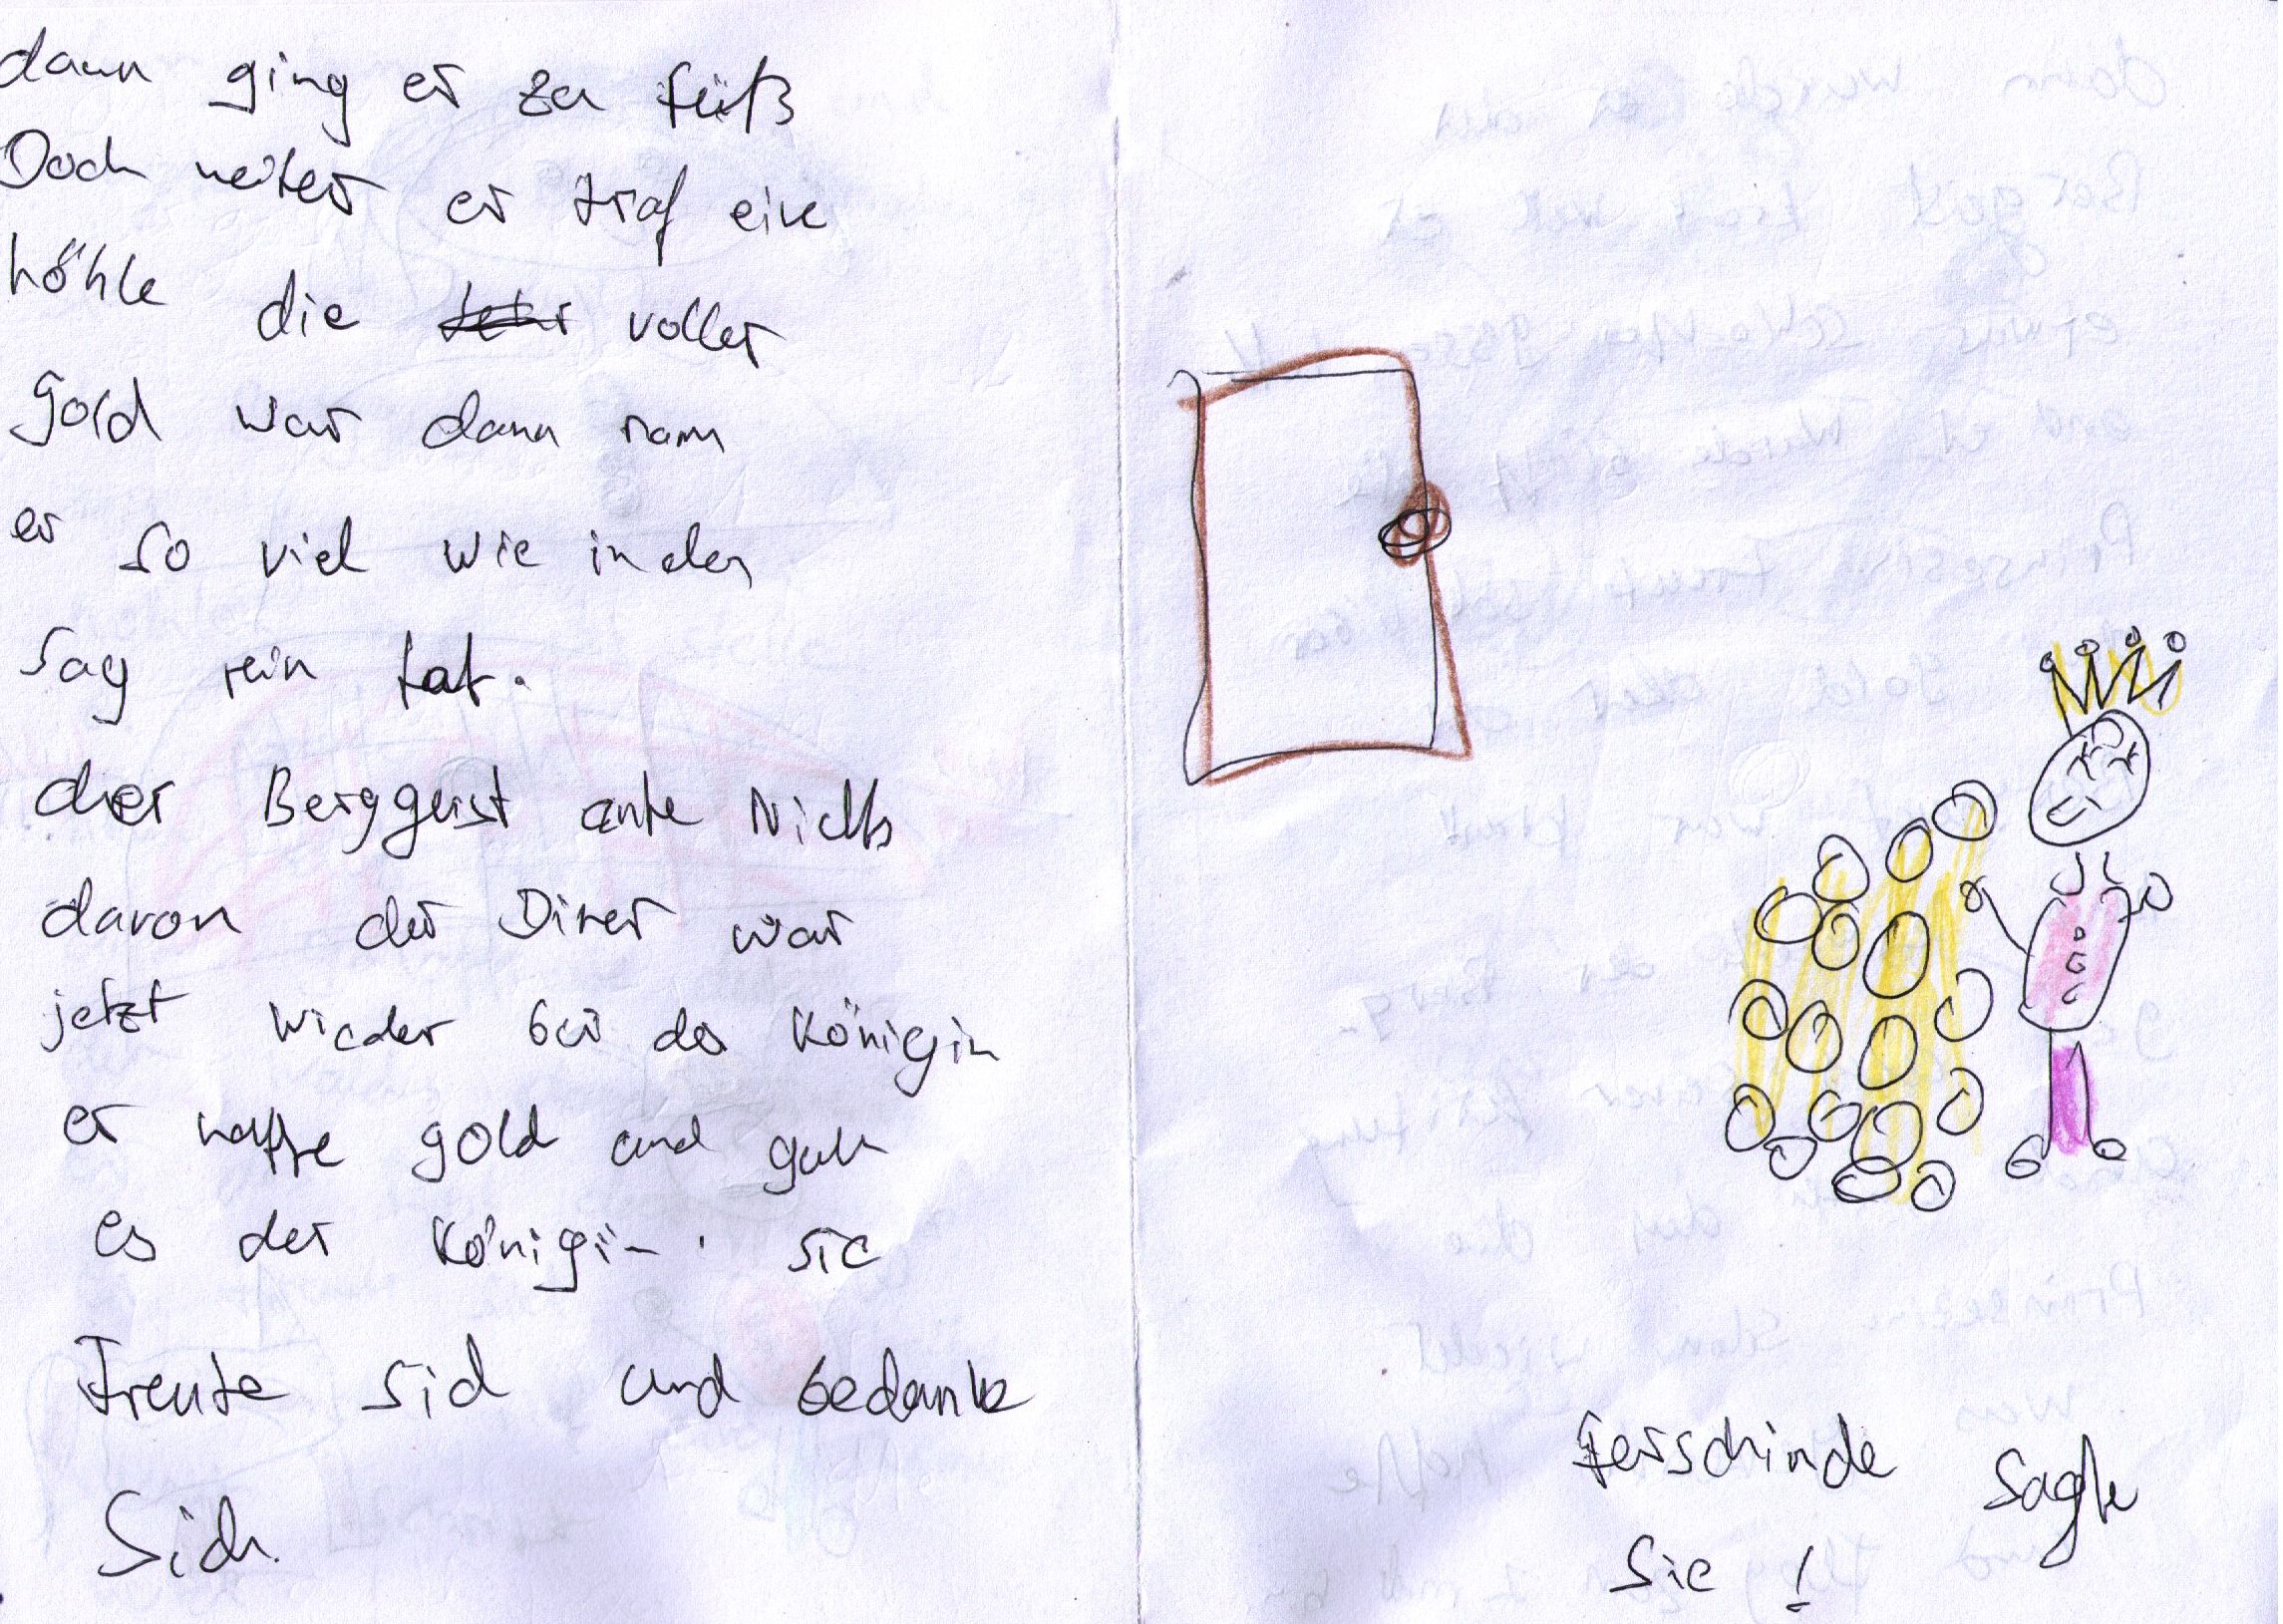 dann ging er zu füß
Doch weiter er traf eine
höhle die voller
gold war dann nam
er so viel wie in den
sag rein tat.
der Berggeist ante Nichts
davon der Diner war
jetzt wieder bei der Königin
er hatte gold und gab
es der Königin. sie
Freute sich und bedankte
Sich.
Ferschinde sagte
sie !